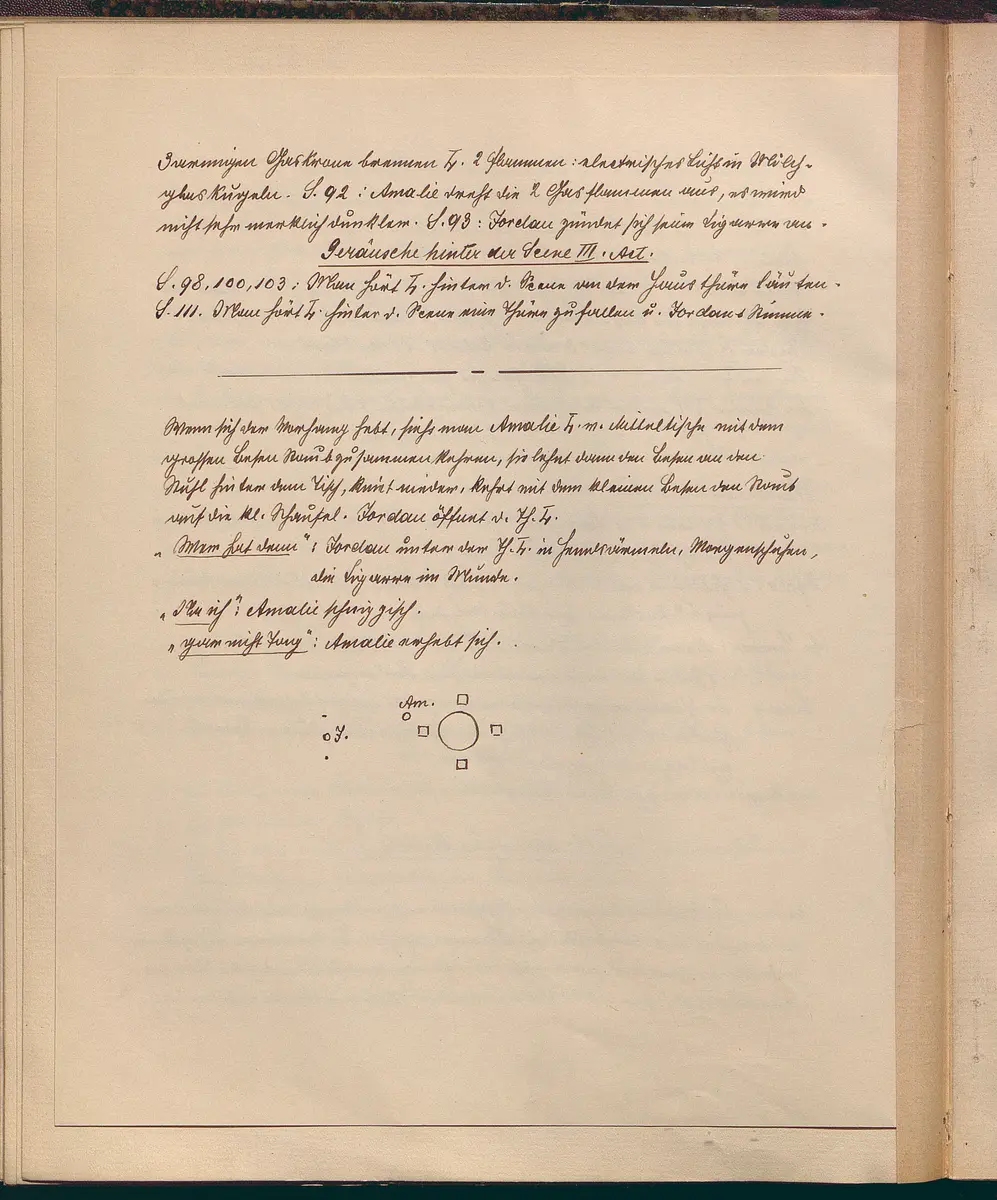 3armigen Gaskrone brennen L. 2 Flammen: electrisches Licht in Milch-
glaskugeln. S. 92: Amalie dreht die 2 Gasflammen aus, es wird
nicht sehr merklich dunkler. S. 93: Jordan zündet sich seine Cigarre an.
Geräusche hinter der Scene III. Act.
S. 98, 100, 103: Man hört L. hinter d. Scene an der Hausthüre läuten.
S. 111. Man hört L. hinter d. Scene eine Thüre zufallen u. Jordans Stimme.
Wenn sich der Vorhang hebt, sieht man Amalie L. v. Mitteltische mit dem
grossen Besen Staub zusammenkehren, sie lehnt dann den Besen an den
Stuhl hinter dem Tisch, kniet nieder, kehrt mit dem kleinen Besen den Staub
auf die kl. Schaufel. Jordan öffnet d. Th. L.
„Wer hat denn": Jordan unter der Th. L. in Hemdsärmeln, Morgenschuhen,
die Cigarre im Munde.
„Na ich": Amalie schnippisch.
„gar nicht Tag": Amalie erhebt sich.
Am.
J.